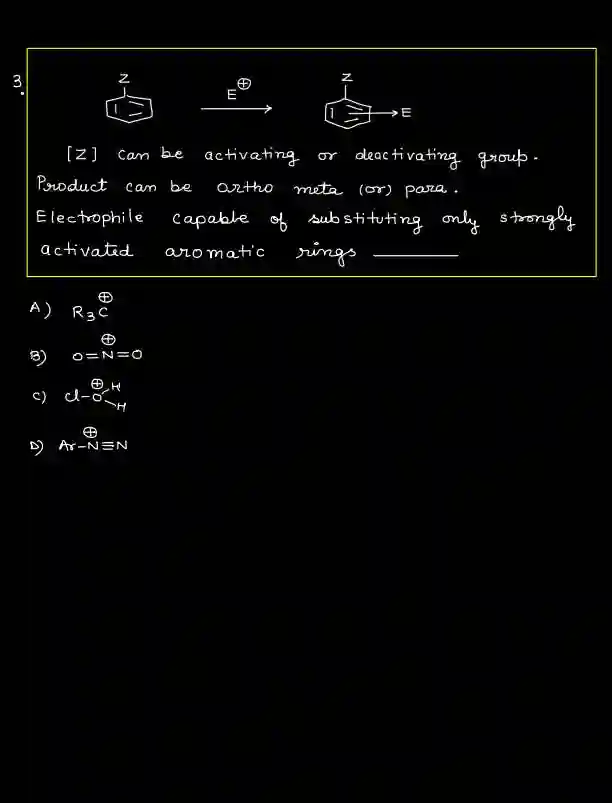 3.
Z
E⊕
Z
E
[Z] can be activating or deactivating group.
Product can be ortho meta (or) para.
Electrophile capable of substituting only strongly
activated aromatic rings ______
A) R₃C⊕
B) O=N⊕=O
C) Cl-O⊕ H H
D) Ar-N⊕≡N